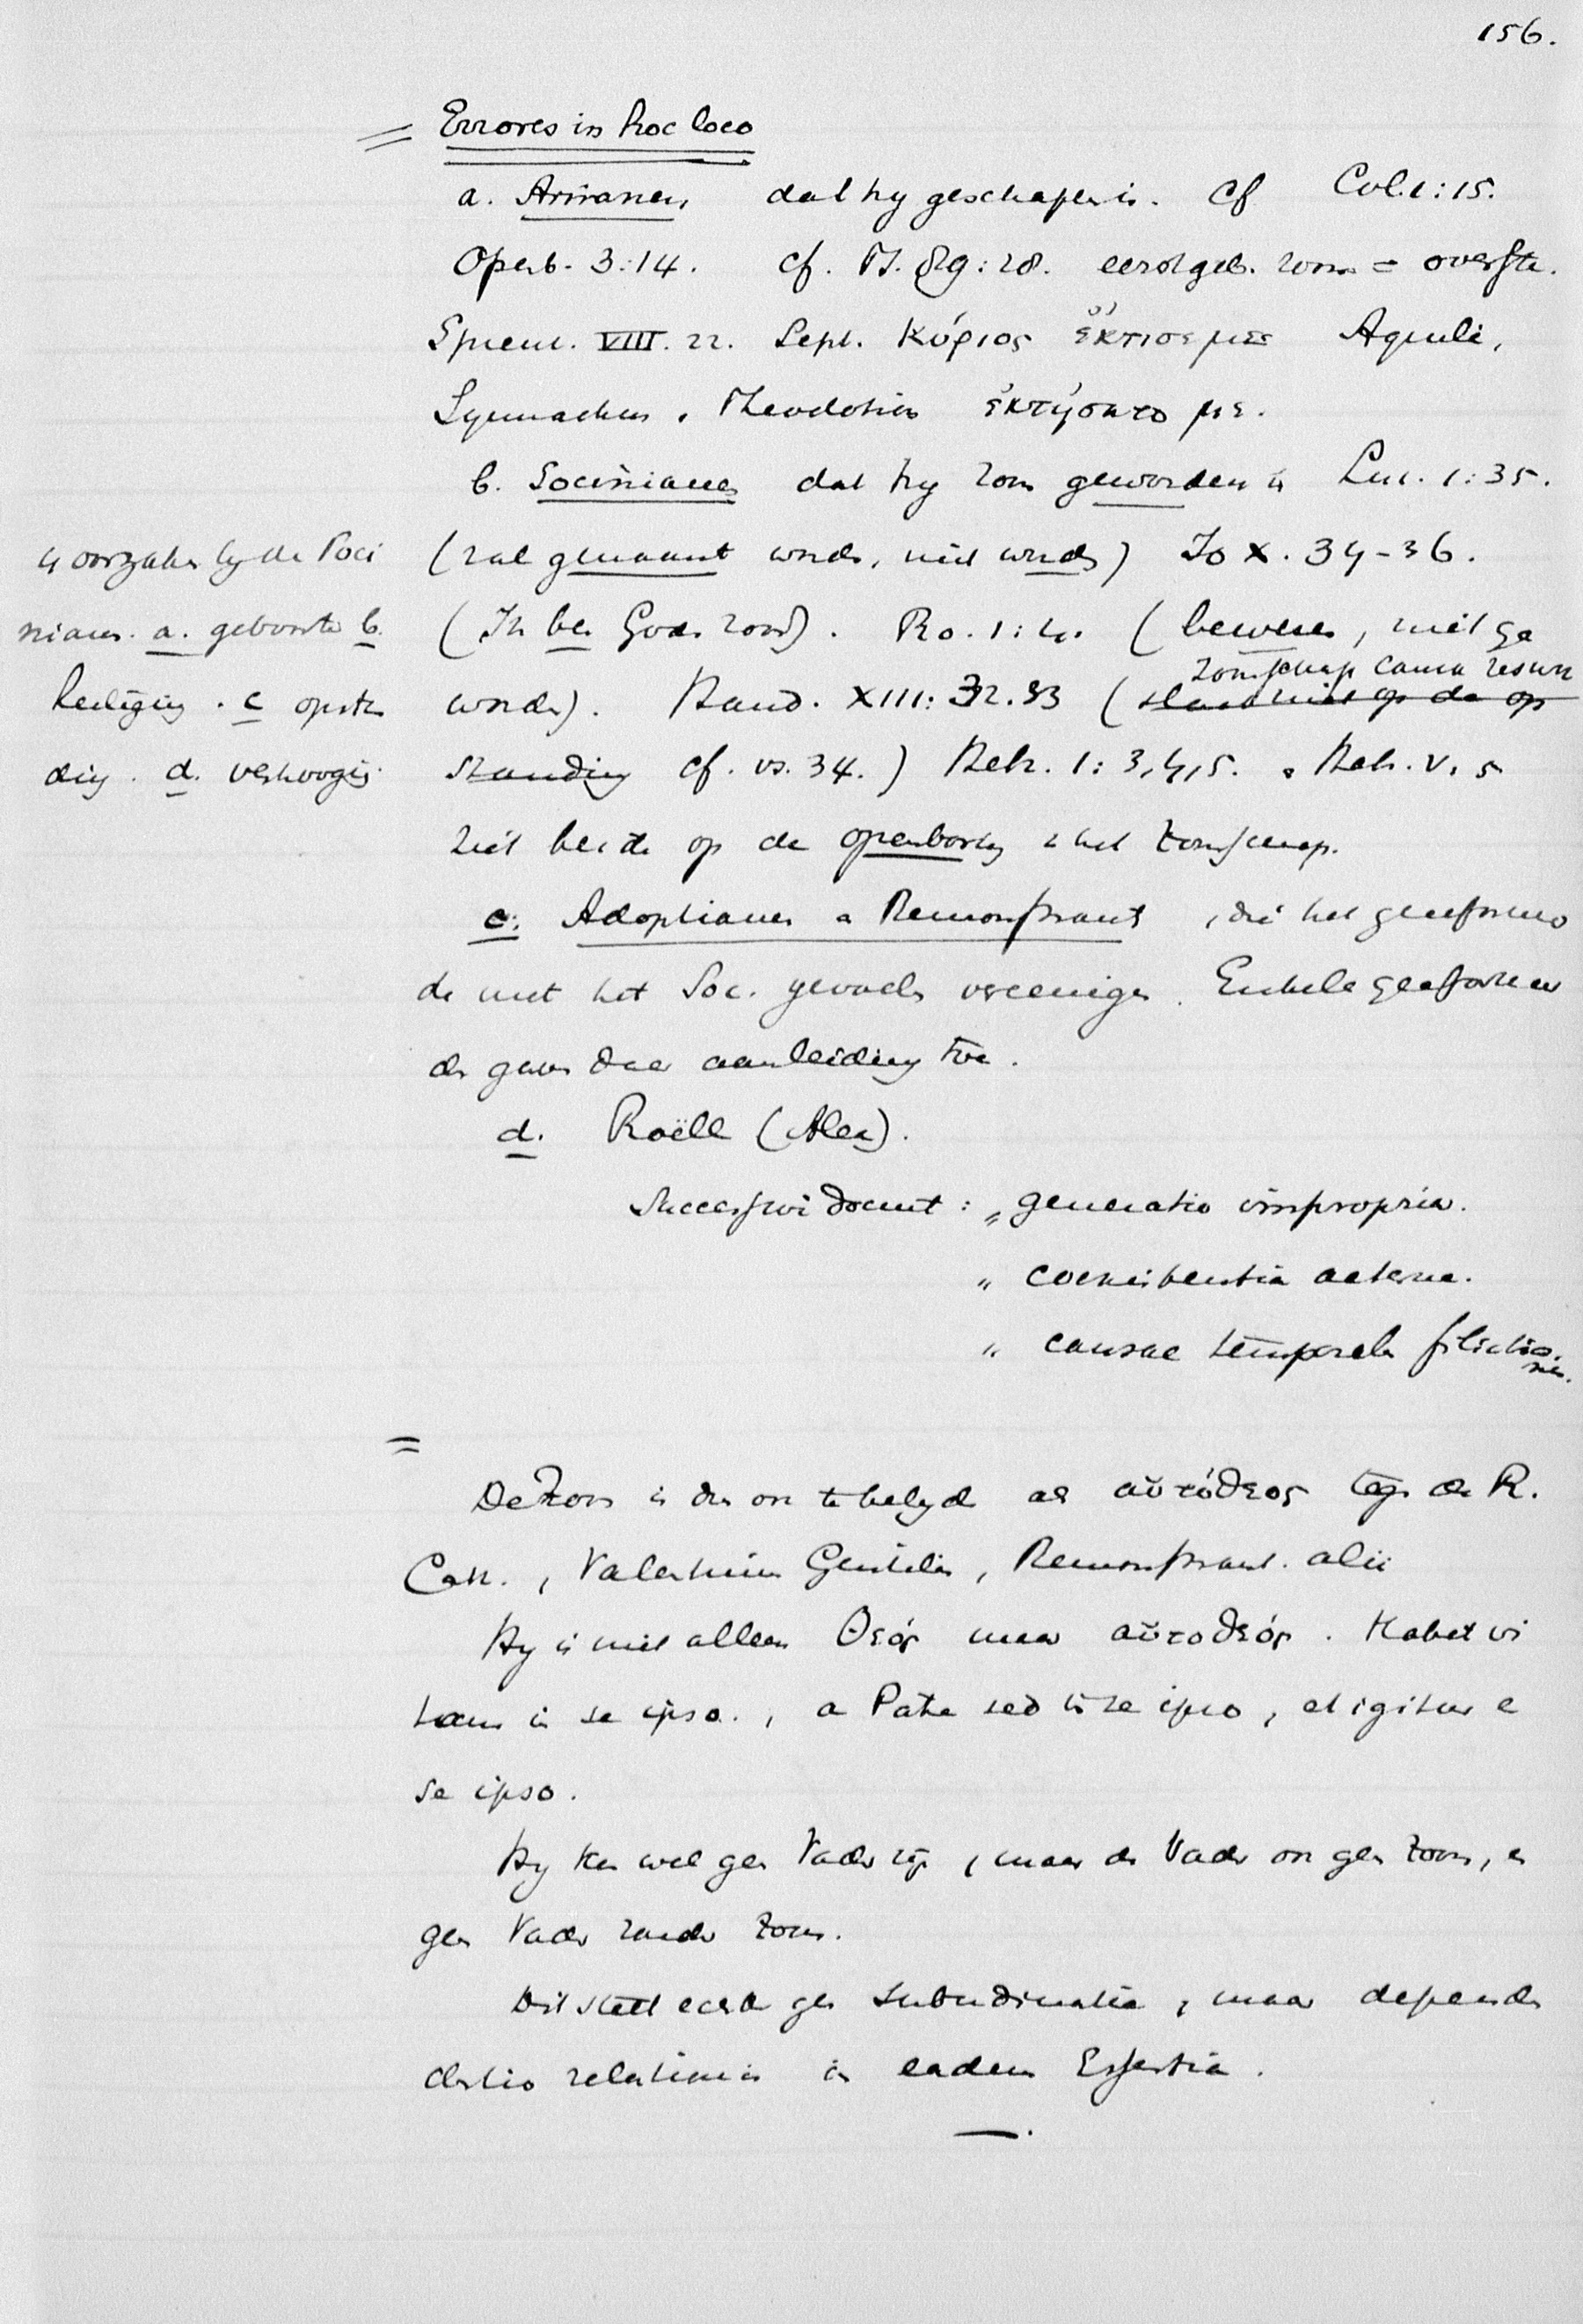 156.
= Errores in hoc loco
a. Arrianen, dat hy geschapen is. Cf Col. 1:15.
Openb. 3:14. cf. Ps. 89:28. eerstgeb. zoon = overste.
Spreuk. VIII. 22. Sept. Κύριος ἔκτισε με Aquila,
Symmachus, Theodotion ἐκτήσατο με.
b. Socinianen dat hy zoon geworden is Luc. 1:35.
(zal genaamt worden, niet worden) Jo X. 34-36.
(Ik ben Gods zoon). Ro. 1:4. (bewezen, niet ge
zoonschap causa resurr
worden). Hand. XIII: 32.33 (slaat niet op de op
standing cf. vs. 34.) Heb. 1:3,4,5. Heb. V. 5
ziet beide op de openbaring v het zoonschap.
4 oorzaken by de Soci
nianen. a. geboorte b.
heiliging. c opstan
ding. d. verhooging.
c. Adoptianen en Remonstrant, die het gereformeer
de met het Soc. gevoelen vereenigen. Enkele gereformeer
den gaven daar aanleiding toe.
d. Roëll (Alex).
Successive docuit: „ generatio impropria.
„ coexistentia aeterna.
„ causae temporales filiatio
nis.
=
De Zoon is dus ook te belyden als αὐτόθεος tegen de R.
Cath., Valentinus Gentilis, Remonstrant. alii
Hy is niet alleen Θεός maar αὐτοθεός. Habet vi
tam in se ipso, a Patre sed in se ipso, et igitur e
se ipso.
Hy kan wel geen Vader zijn, maar de Vader ook geen Zoon, en
geen Vader zonder Zoon.
Dit stelt echter geen subordinatie, maar depend
entio relationis in eadem Essentia.